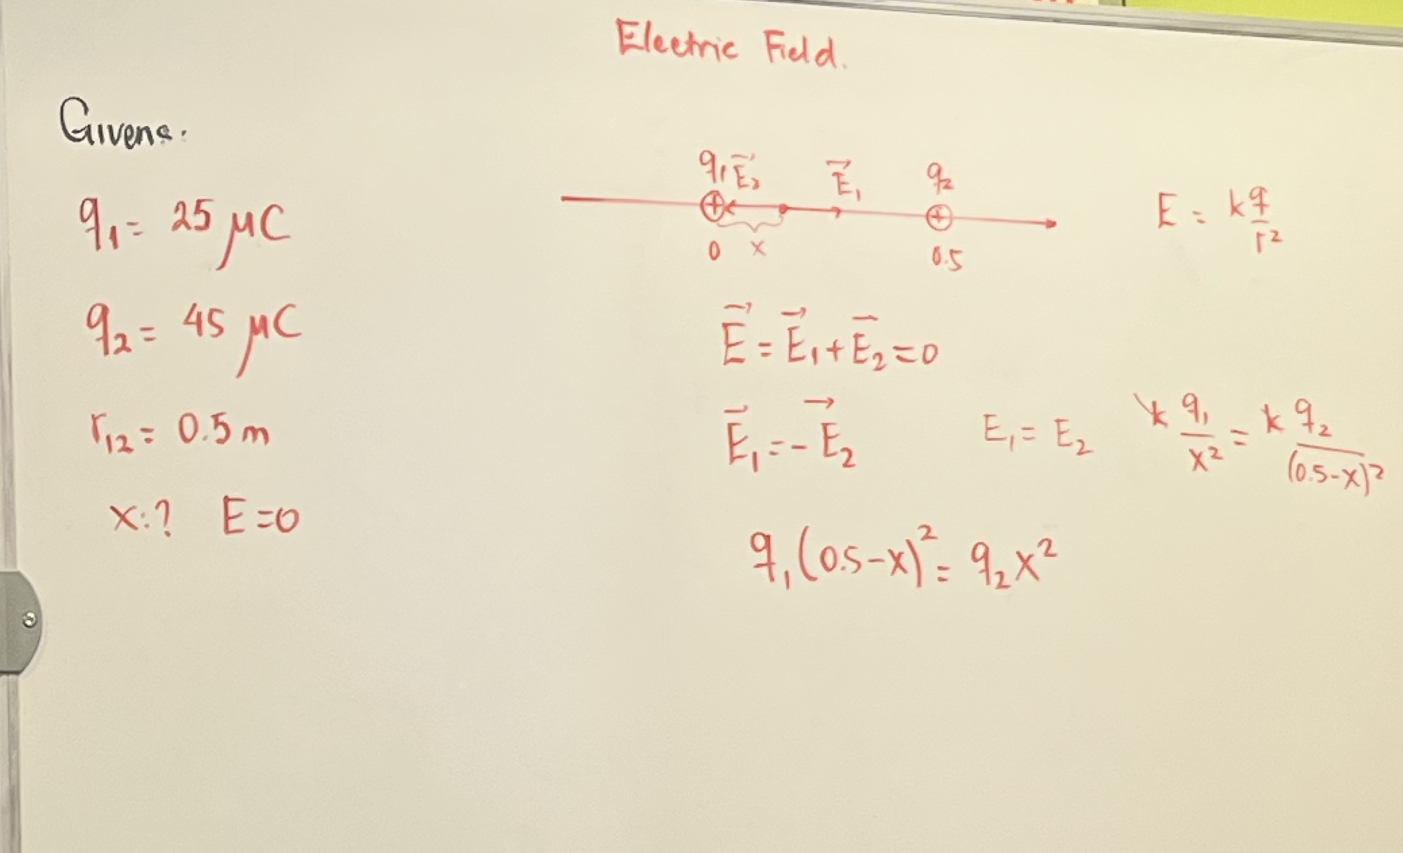 Electric Field.
Givens.
q₁ = 25 μC
q₂ = 45 μC
r₁₂ = 0.5 m
x:? E = 0
q₁ E⃗₂ E⃗₁ q₂
0 x 0.5
E = k q/r²
E⃗ = E⃗₁ + E⃗₂ = 0
E⃗₁ = - E⃗₂ E₁ = E₂ k q₁/x² = k q₂/(0.5-x)²
q₁(0.5-x)² = q₂x²